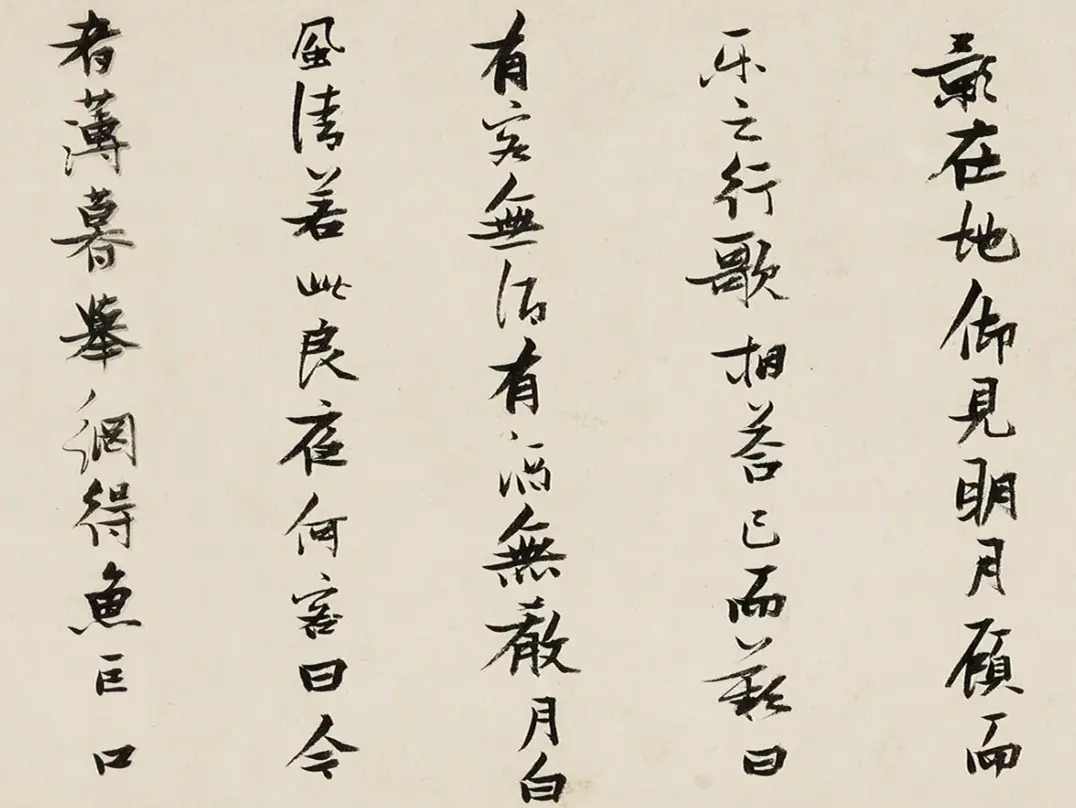 影在地仰見明月顧而
樂之行歌相荅已而歎曰
有客無酒有酒無殽月白
風清若此良夜何客曰今
者薄暮舉網得魚巨口